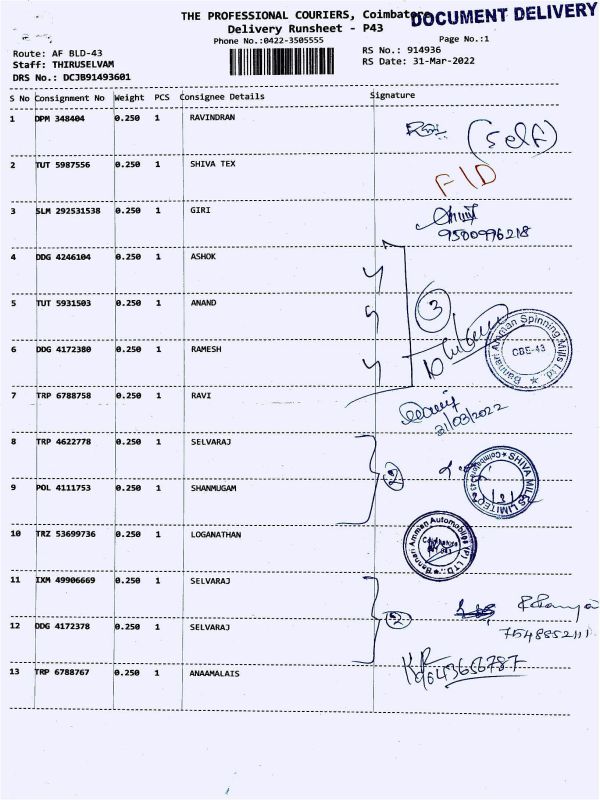 THE PROFESSIONAL COURIERS, Coimbatore
DOCUMENT DELIVERY
Delivery Runsheet - P43
Phone No.:0422-3505555
Page No.:1
Route: AF BLD-43
RS No.: 914936
Staff: THIRUSELVAM
RS Date: 31-Mar-2022
DRS No.: DCJB91493601
S No Consignment No Weight PCS Consignee Details Signature
1 DPM 348404 0.250 1 RAVINDRAN
(Self)
2 TUT 5987556 0.250 1 SHIVA TEX
F/D
3 SLM 292531538 0.250 1 GIRI
9500996218
4 DDG 4246104 0.250 1 ASHOK
5 TUT 5931503 0.250 1 ANAND
3
6 DDG 4172380 0.250 1 RAMESH
Bannari Amman Spinning Mills Ltd.
CBE-43
7 TRP 6788758 0.250 1 RAVI
31/03/2022
8 TRP 4622778 0.250 1 SELVARAJ
2
SHIVA MILLS LIMITED
9 POL 4111753 0.250 1 SHANMUGAM
10 TRZ 53699736 0.250 1 LOGANATHAN
Bannari Amman Automobiles (P) LTD.
11 IXM 49906669 0.250 1 SELVARAJ
2
12 DDG 4172378 0.250 1 SELVARAJ
7548852111
13 TRP 6788767 0.250 1 ANAAMALAIS